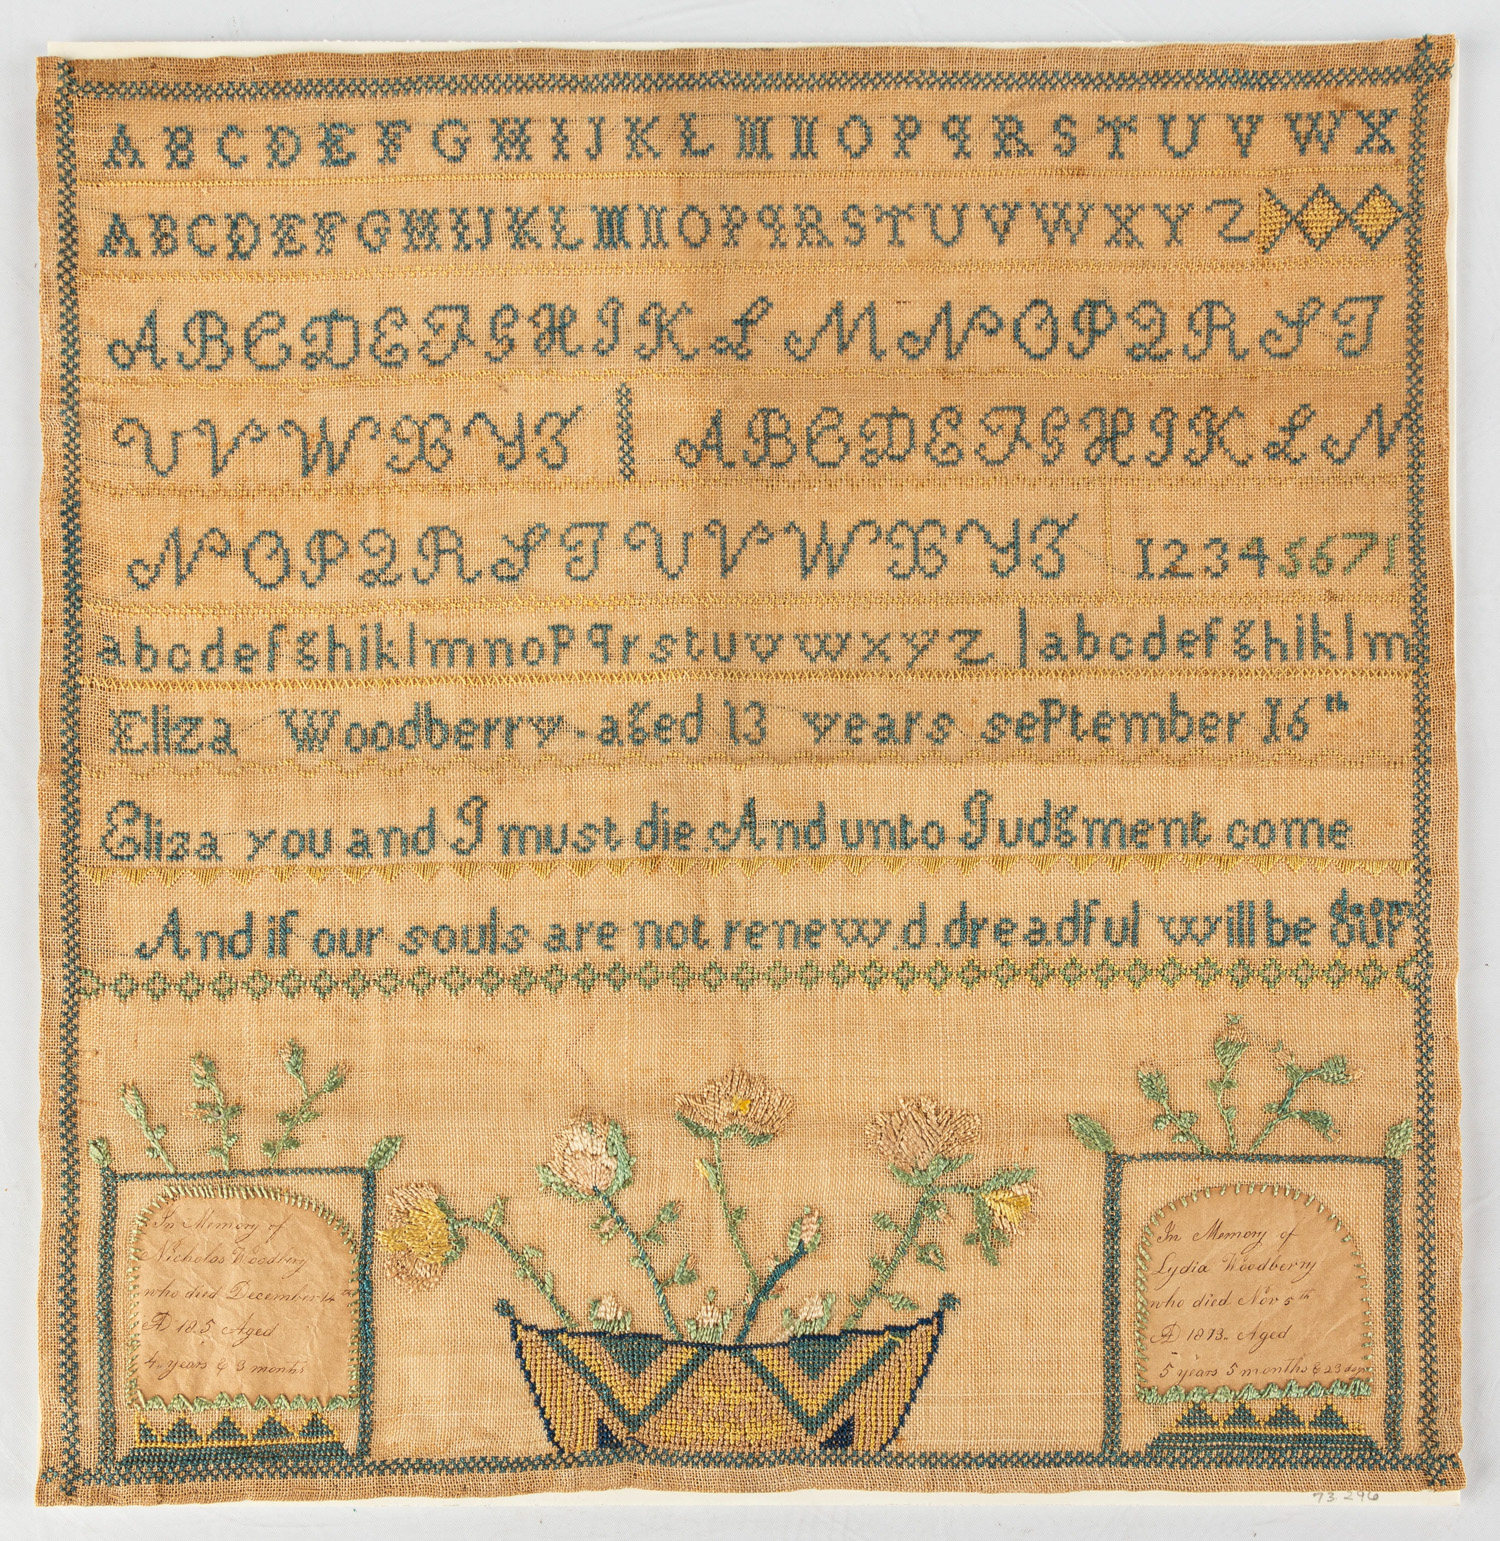 A B C D E F G H I J K L M N O P q R S T U V W X
A B C D E F G H I J K L M N O P q R S T U V W X Y Z
A B C D E F G H I K L M N O P Q R S T
U V W X Y Z A B C D E F G H I K L M
N O P Q R S T U V W X Y Z 1 2 3 4 5 6 7
a b c d e f g h i k l m n o p q r s t u v w x y z a b c d e f g h i k l m
Eliza Woodberry aged 13 years sePtember 16th
Eliza you and I must die And unto Judgment come
And if our souls are not renew,d dreadful will be our doom
In Memory of
Nicholas Woodbery
who died December 14th
AD 18 5 Aged
4 years & 3 months
In Memory of
Lydia Woodberry
who died Nov 5th
AD 1813 Aged
5 years 5 months & 23 days
73.296